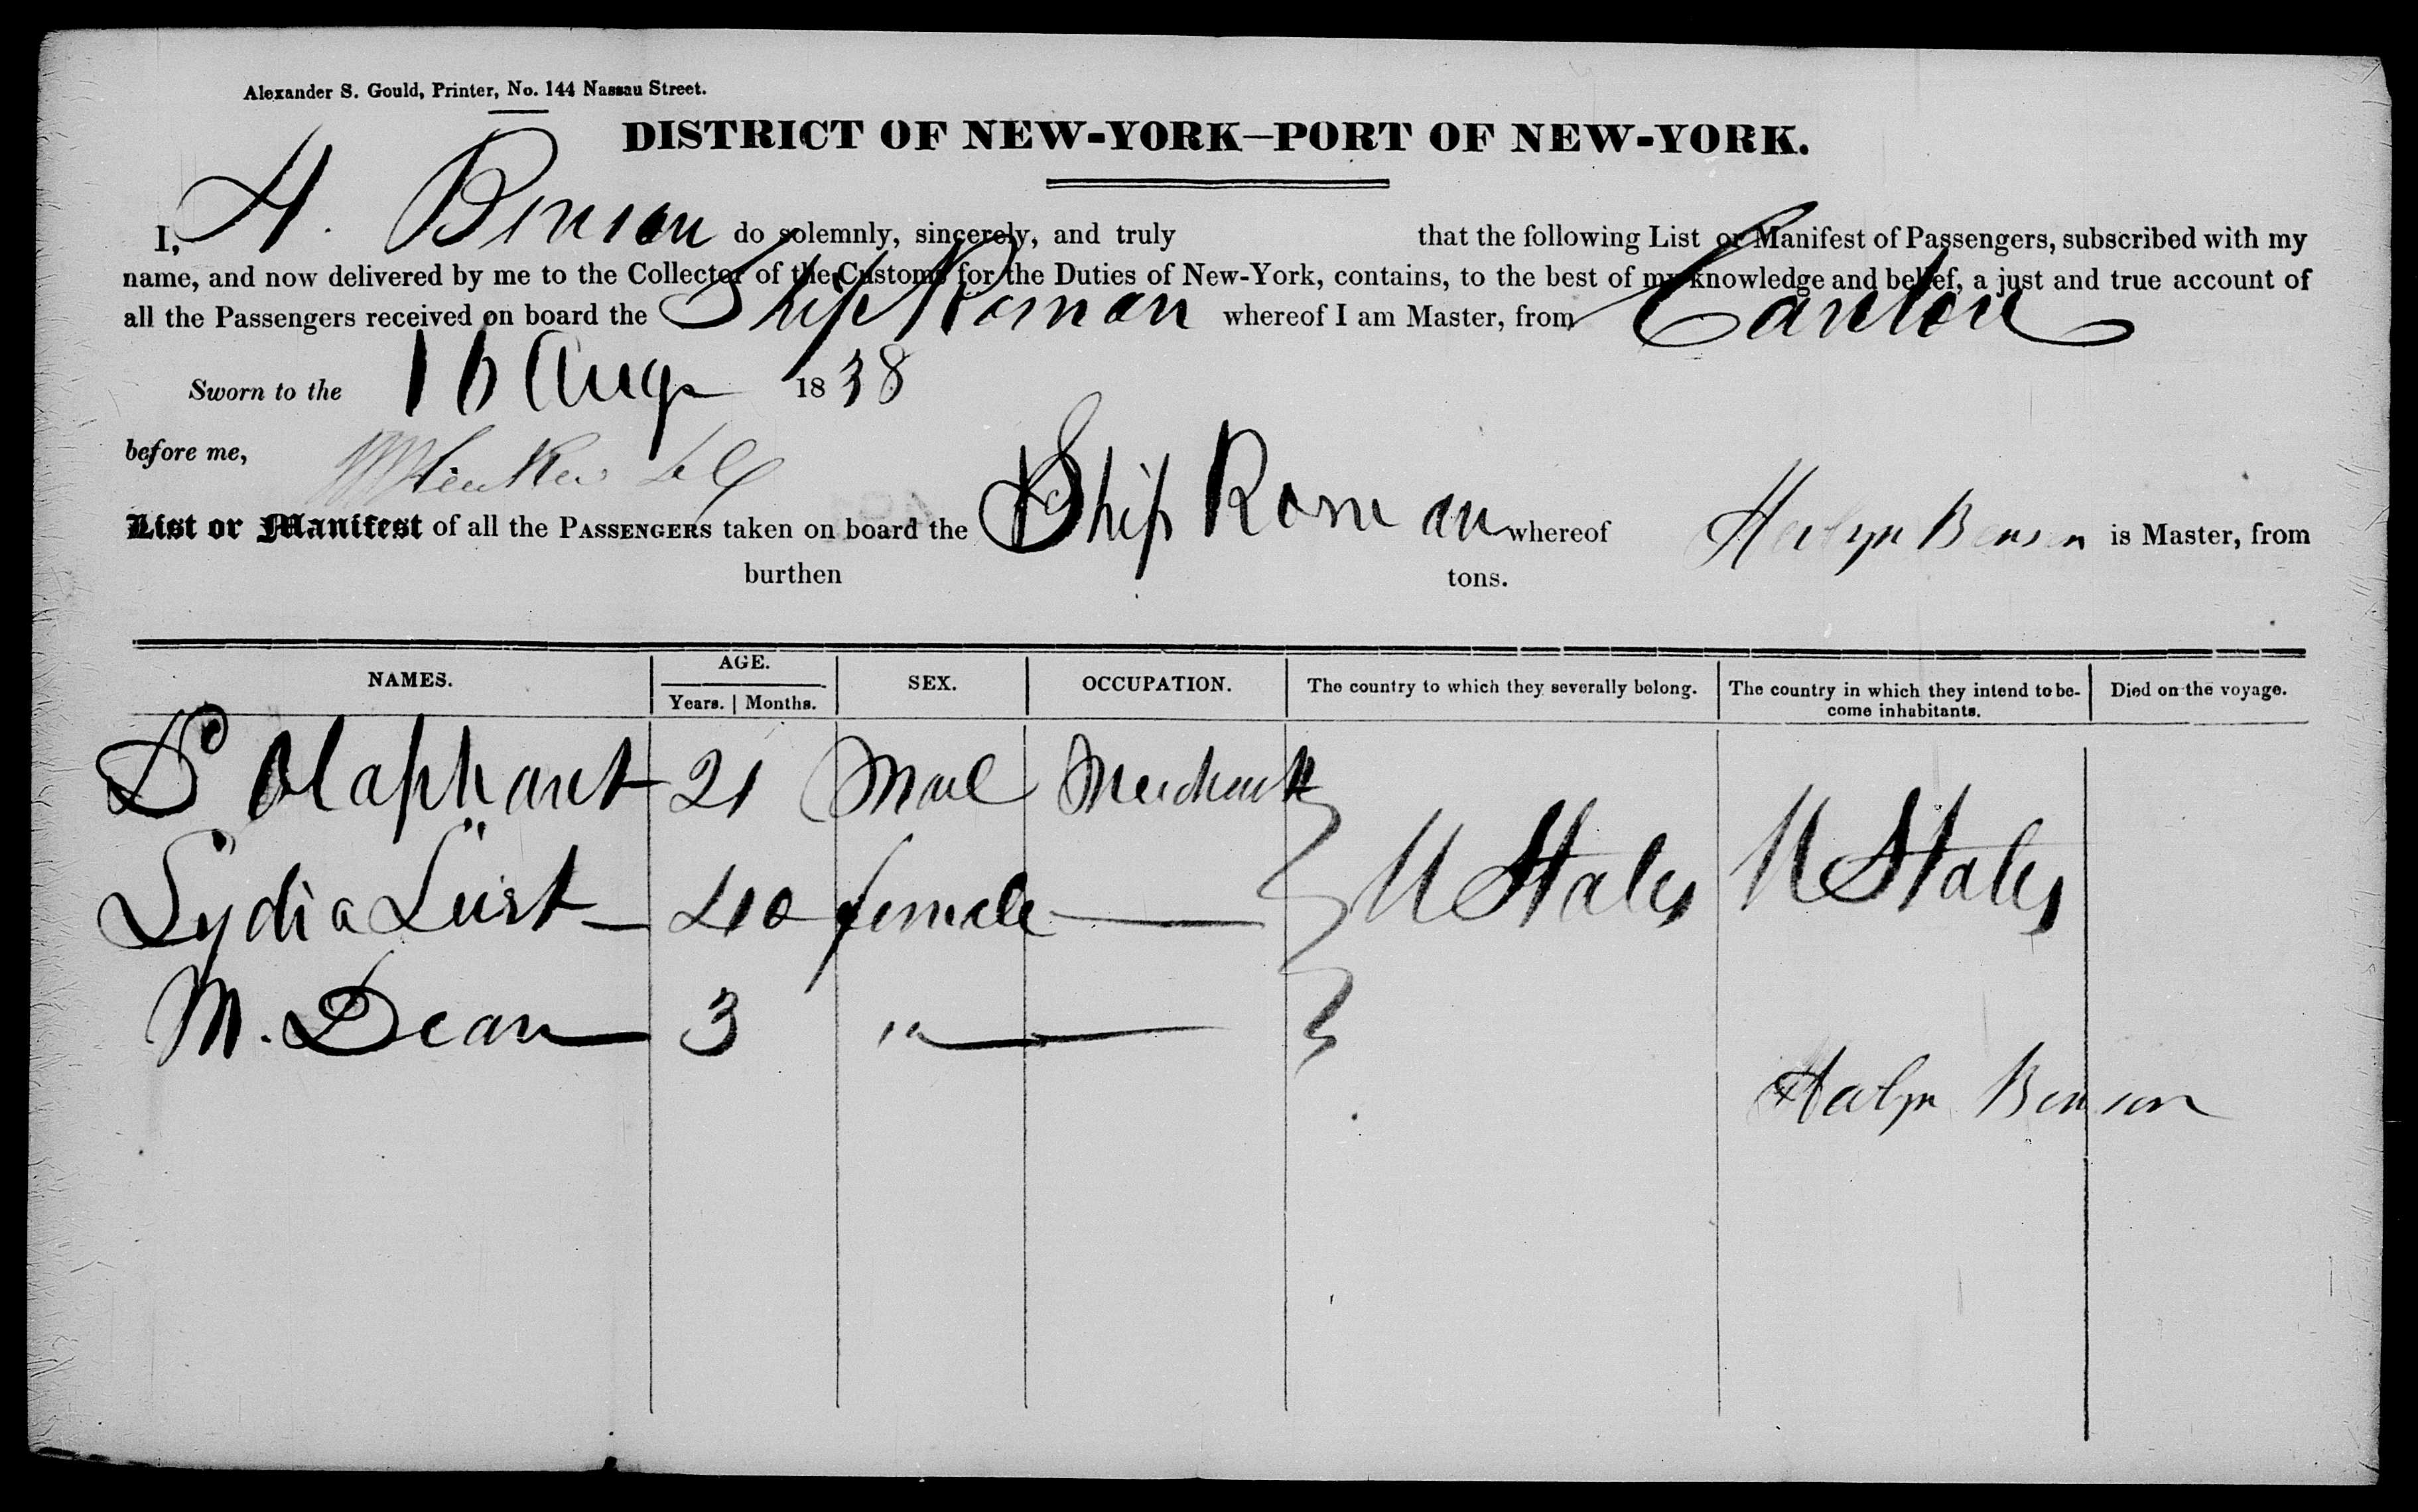 Alexander S. Gould, Printer, No. 144 Nassau Street.
DISTRICT OF NEW-YORK—PORT OF NEW-YORK.
I, H. Benson do solemnly, sincerely, and truly that the following List or Manifest of Passengers, subscribed with my
name, and now delivered by me to the Collector of the Customs for the Duties of New-York, contains, to the best of my knowledge and belief, a just and true account of
all the Passengers received on board the Ship Roman whereof I am Master, from Canton
Sworn to the 16 Aug 1838
before me,
List or Manifest of all the PASSENGERS taken on board the Ship Roman whereof Benson is Master, from
burthen tons.
NAMES. AGE. Years. | Months. SEX. OCCUPATION. The country to which they severally belong. The country in which they intend to be-come inhabitants. Died on the voyage.
Olaphant 21 Male Merchant
Lydia 40 female U States U States
M. Dean 3 "
Benson